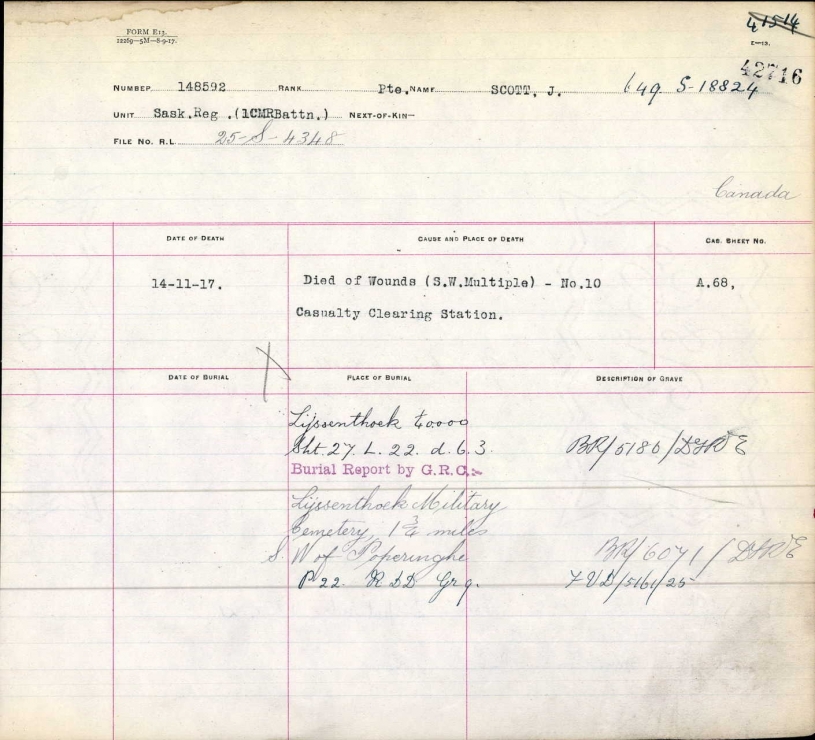 FORM E13.
12269—5M—8-9-17.
41514
E—13.
42716
NUMBER 148592 RANK Pte. NAME SCOTT, J. 649 S-18824
UNIT Sask.Reg .(1CMRBattn.) NEXT-OF-KIN—
FILE No. R.L. 25-S-4348
Canada
DATE OF DEATH CAUSE AND PLACE OF DEATH CAS. SHEET NO.
14-11-17. Died of Wounds (S.W.Multiple) - No.10 A.68,
Casualty Clearing Station.
DATE OF BURIAL PLACE OF BURIAL DESCRIPTION OF GRAVE
Lijssenthoek 40000
Sht. 27. L. 22. d. 6. 3. BR/5180/DGRE
Burial Report by G.R.C.
Lijssenthoek Military
Cemetery, 1 3/4 miles
S. W of Poperinghe BR/6071/DGRE
P 22. R DD Gr 9.